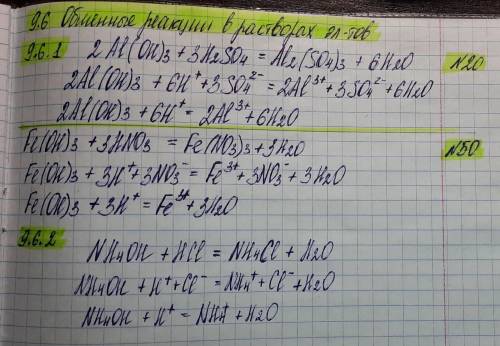 9.6 Обменные реакции в растворах эл-тов
9.6.1 2Al(OH)3 + 3H2SO4 = Al2(SO4)3 + 6H2O N20
2Al(OH)3 + 6H⁺ + 3SO4²⁻ = 2Al³⁺ + 3SO4²⁻ + 6H2O
2Al(OH)3 + 6H⁺ = 2Al³⁺ + 6H2O
Fe(OH)3 + 3HNO3 = Fe(NO3)3 + 3H2O N50
Fe(OH)3 + 3H⁺ + 3NO3⁻ = Fe³⁺ + 3NO3⁻ + 3H2O
Fe(OH)3 + 3H⁺ = Fe³⁺ + 3H2O
9.6.2
NH4OH + HCl = NH4Cl + H2O
NH4OH + H⁺ + Cl⁻ = NH4⁺ + Cl⁻ + H2O
NH4OH + H⁺ = NH4⁺ + H2O